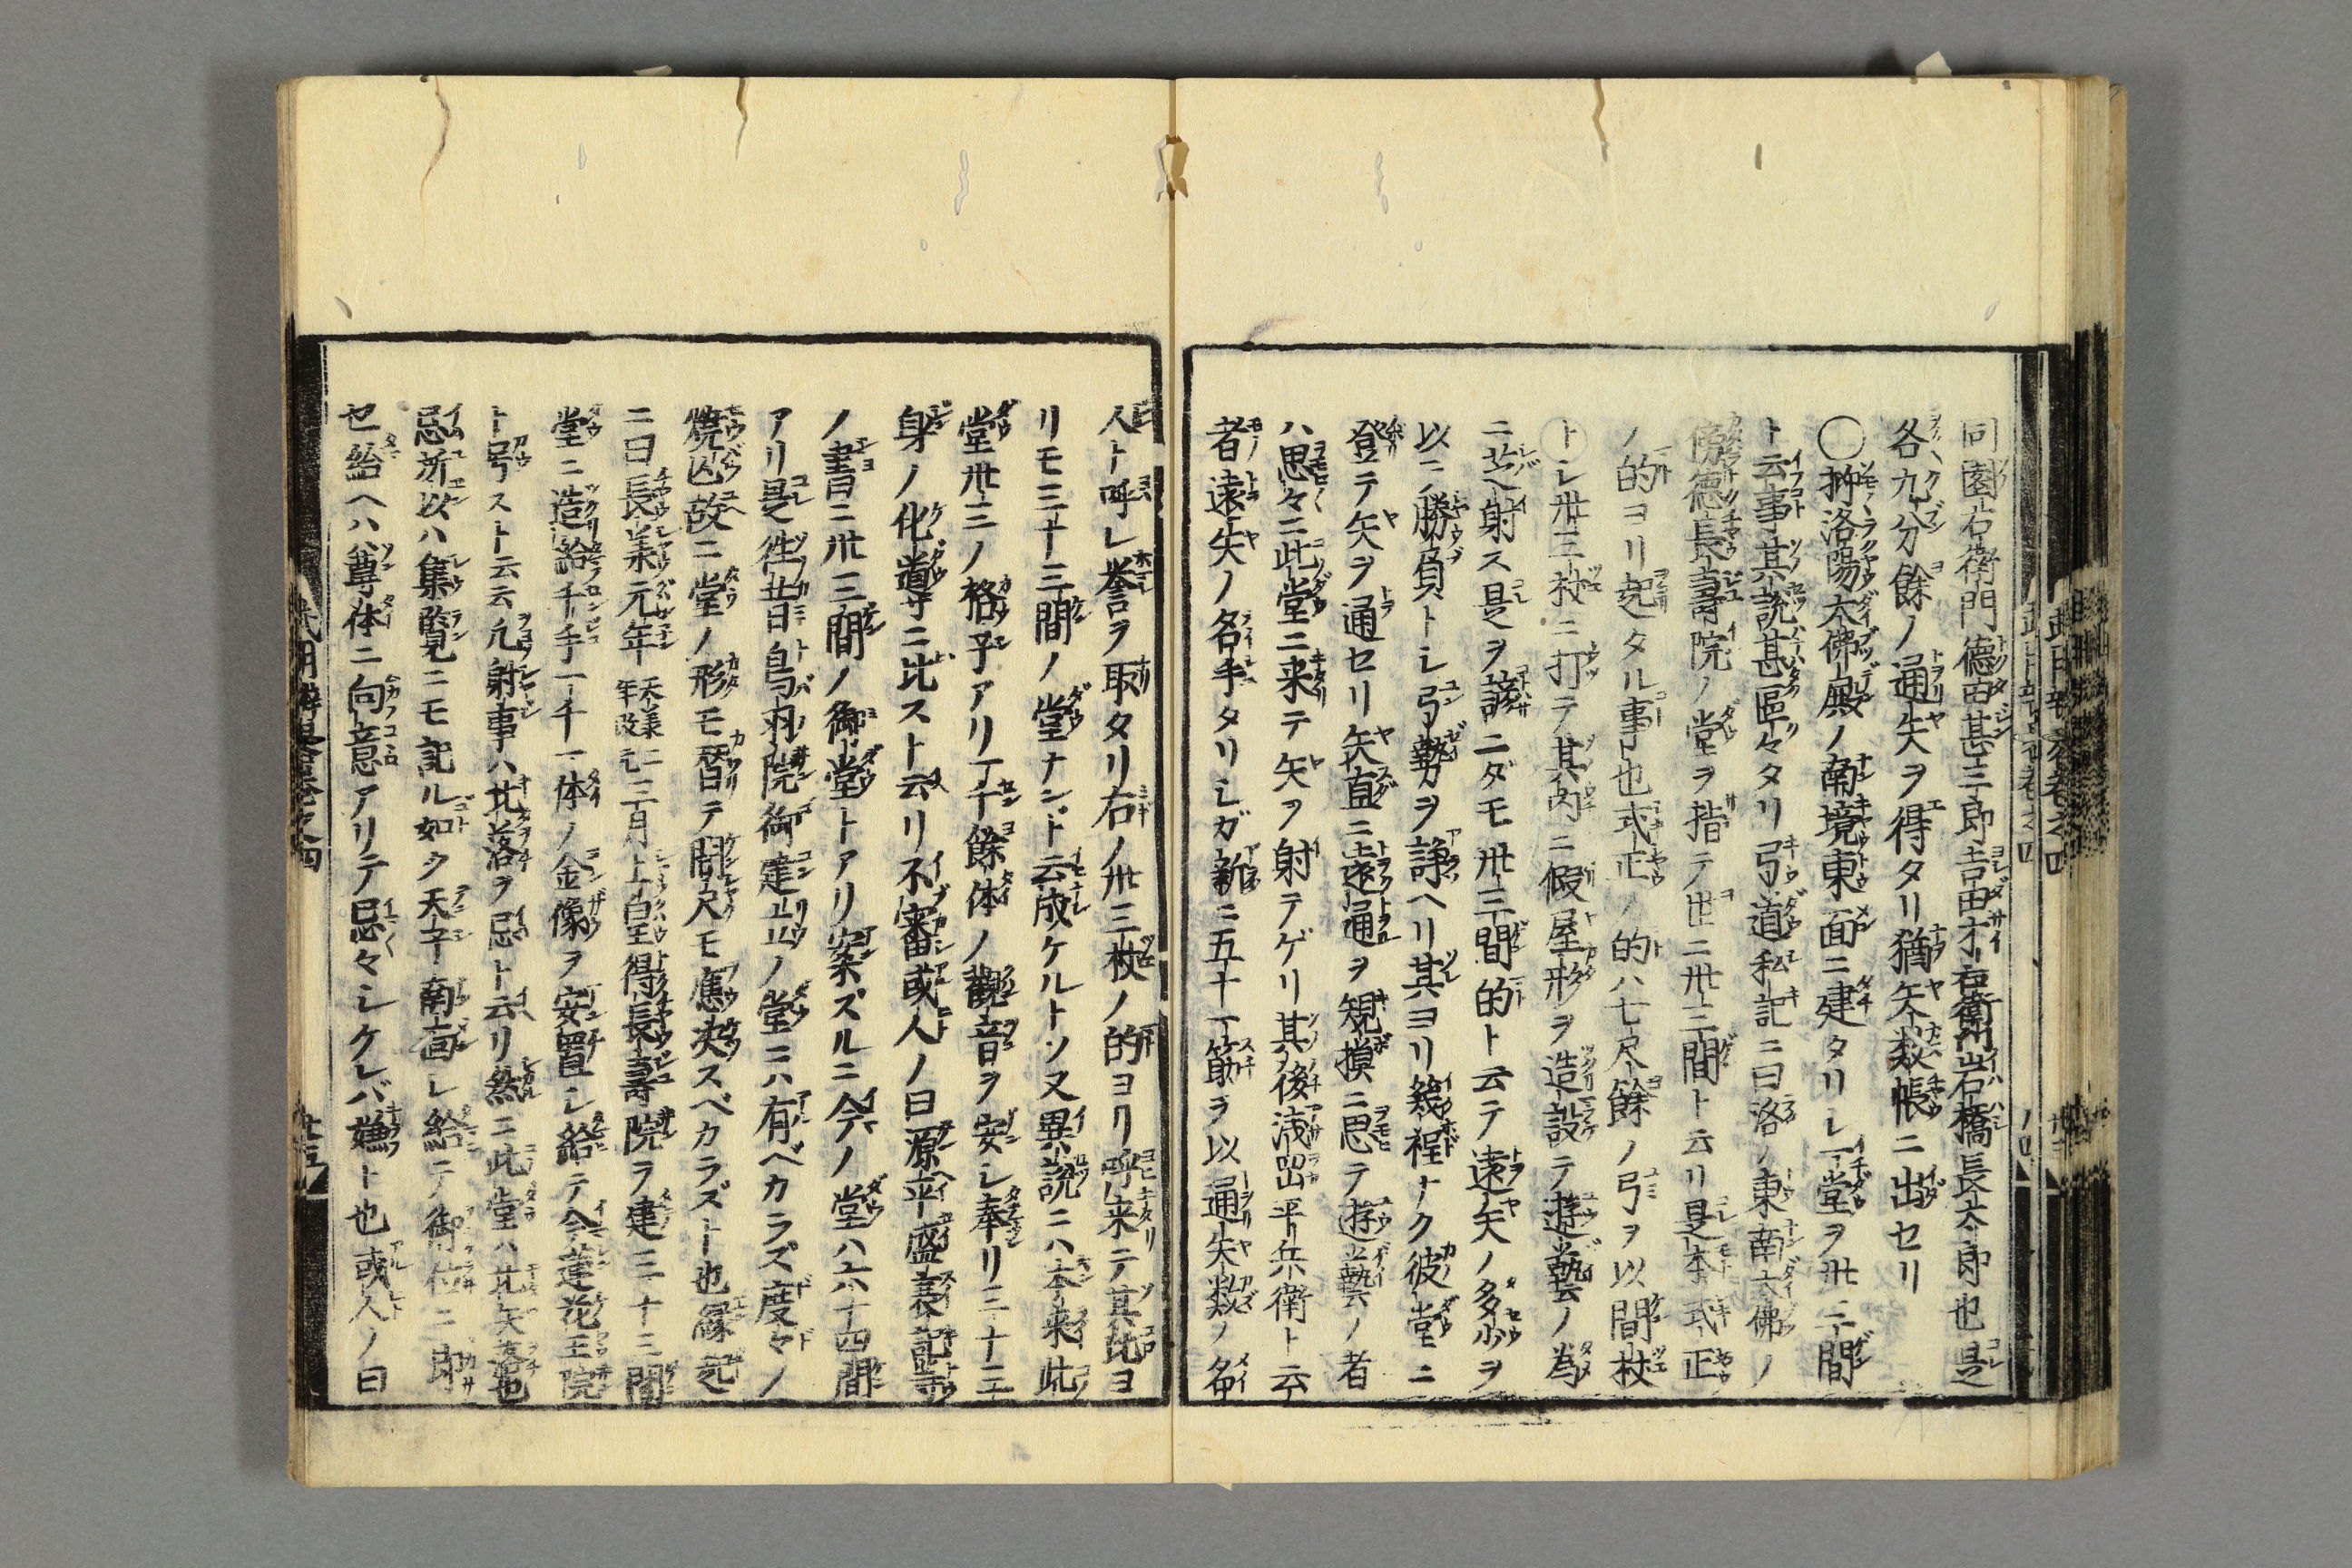 同園右衛門德田甚三郎吉田才右衛門岩橋長太郎也是
各九分餘ノ通矢ヲ得タリ猶矢数帳ニ出セリ
◯抑洛陽大佛殿ノ南境東面ニ建タリシ一堂ヲ卅三間
ト云事其説甚區々タリ弓道私記ニ曰洛ノ東南大佛ノ
傍德長壽院ノ堂ヲ指テ世ニ卅三間ト云リ是本式正
ノ的ヨリ起タル事也式正ノ的ハ七尺余ノ弓ヲ以間杖
トシ卅三杖ニ打テ其内ニ假屋形ヲ造設テ遊藝ノ為
ニ芝射ス是ヲ諺ニダモ卅三間的ト云テ遠矢ノ多少ヲ
以ニ勝負トシ弓勢ヲ諍ヘリ其ヨリ幾程ナク彼堂ニ
登テ矢ヲ通セリ矢直ニ遠通ヲ規摸ニ思テ遊藝ノ者
ハ思々ニ此堂ニ来テ矢ヲ射テゲリ其後浅岡平兵衛ト云
者遠矢ノ名手タリシガ新ニ五十一筋ヲ以通矢数ノ名
人ト呼レ誉ヲ取タリ右ノ卅三杖ノ的ヨリ呼来テ其比ヨ
リモ三十三間ノ堂ナンド云成ケルトソ又異説ニハ本来此
堂卅三ノ格子アリ一千餘体ノ觀音ヲ安シ奉リ三十三
身ノ化導ニ比スト云リ不審或人ノ曰源平盛衰記等
ノ書ニ卅三間ノ御堂トアリ案ズルニ今ノ堂ハ六十四間
アリ是徃昔鳥羽院御建立ノ堂ニハ有ベカラズ度々ノ
焼亡故ニ堂ノ形モ替テ間尺モ應スベカラズト也縁起
ニ曰長承元年天承二年改元三月上皇得長壽院ヲ建三十三間
堂ニ造給千手一千一体ノ金像ヲ安置シ給テ今蓮花王院
ト号スト云云凡射事ハ北落ヲ忌ト云リ然ニ此堂ハ北矢落也
忌所以ハ集覧ニモ記ル如ク天子南面シ給テ御位ニ即
セ給ヘハ尊体ニ向意アリテ忌々シケレバ嫌ト也或人ノ曰